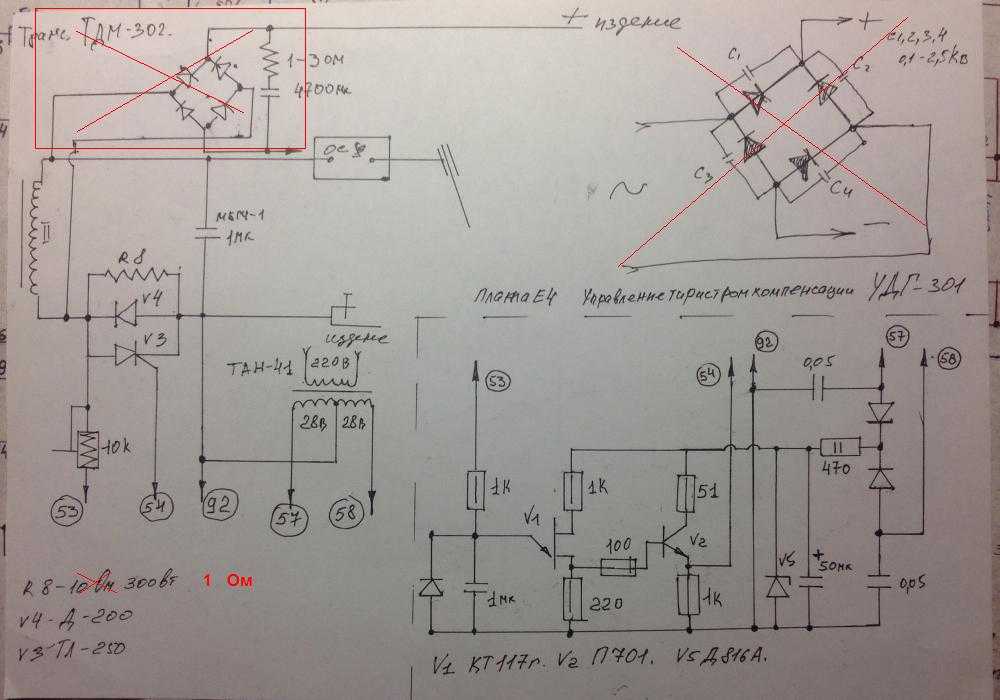 Транс. ТДМ-302.
+ изделие
1-3 Ом
4700мк
C1,2,3,4
0,1-2,5Кв
C1
C2
C3
C4
+
−
ОСЦ
МБГЧ-1
1мк
II
R8
V4
V3
10К
Плата Е4 Управление тиристром компенсации УДГ-301
изделие
ТАН-41
220В
28В
28В
53
54
92
57
58
53
54
92
57
58
0,05
470
1К
1К
51
V1
V2
100
220
1К
1мк
V5
+
50мк
0,05
R8-10 Ом 300вт
1 Ом
V4-Д-200
V3-ТЛ-250
V1 КТ117г. V2 П701. V5 Д816А.